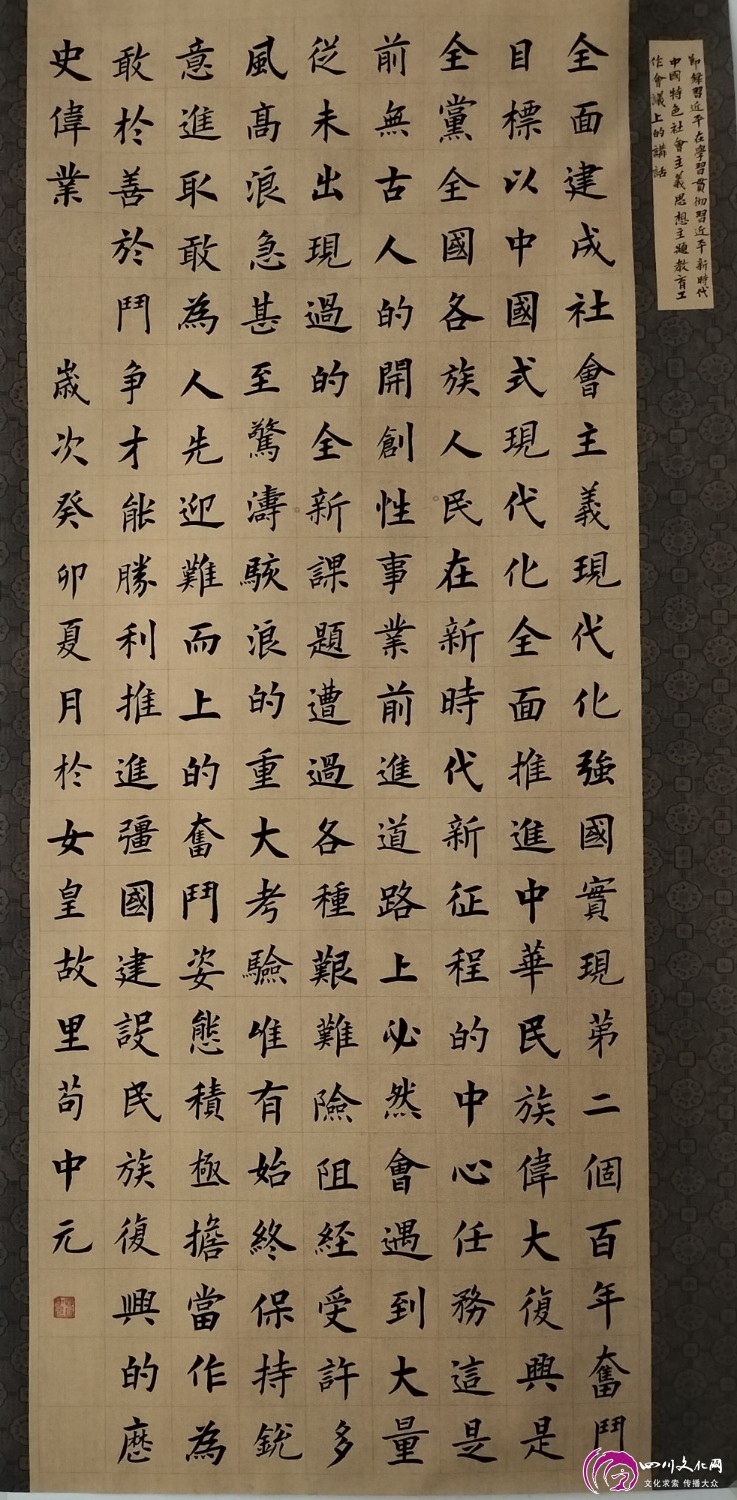 節錄習近平在學習貫彻習近平新時代
中國特色社會主義思想主題教育工
作會議上的講話
全面建成社會主義現代化強國實現第二個百年奮鬥
目標以中國式現代化全面推進中華民族偉大復興是
全黨全國各族人民在新時代新征程的中心任務這是
前無古人的開創性事業前進道路上必然會遇到大量
從未出現過的全新課題遭過各種艱難險阻經受許多
風高浪急甚至驚濤駭浪的重大考驗唯有始終保持銳
意進取敢為人先迎難而上的奮鬥姿態積極擔當作為
敢於善於鬥争才能勝利推進彊國建設民族復興的歷
史偉業 歲次癸卯夏月於女皇故里苟中元
四川文化网
文化求索 传播大众